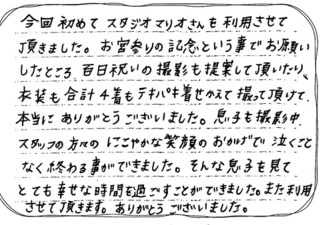 今回初めてスタジオマリオさんを利用させて
頂きました。お宮参りの記念という事でお願い
したところ、百日祝いの撮影も提案して頂いたり、
衣装も合計4着もテキパキ着せかえて撮って頂けて、
本当にありがとうございました。息子も撮影中、
スタッフの方々のにこやかな笑顔のおかげで泣くこと
なく終わる事ができました。そんな息子を見て
とても幸せな時間を過ごすことができました。また利用
させて頂きます。ありがとうございました。